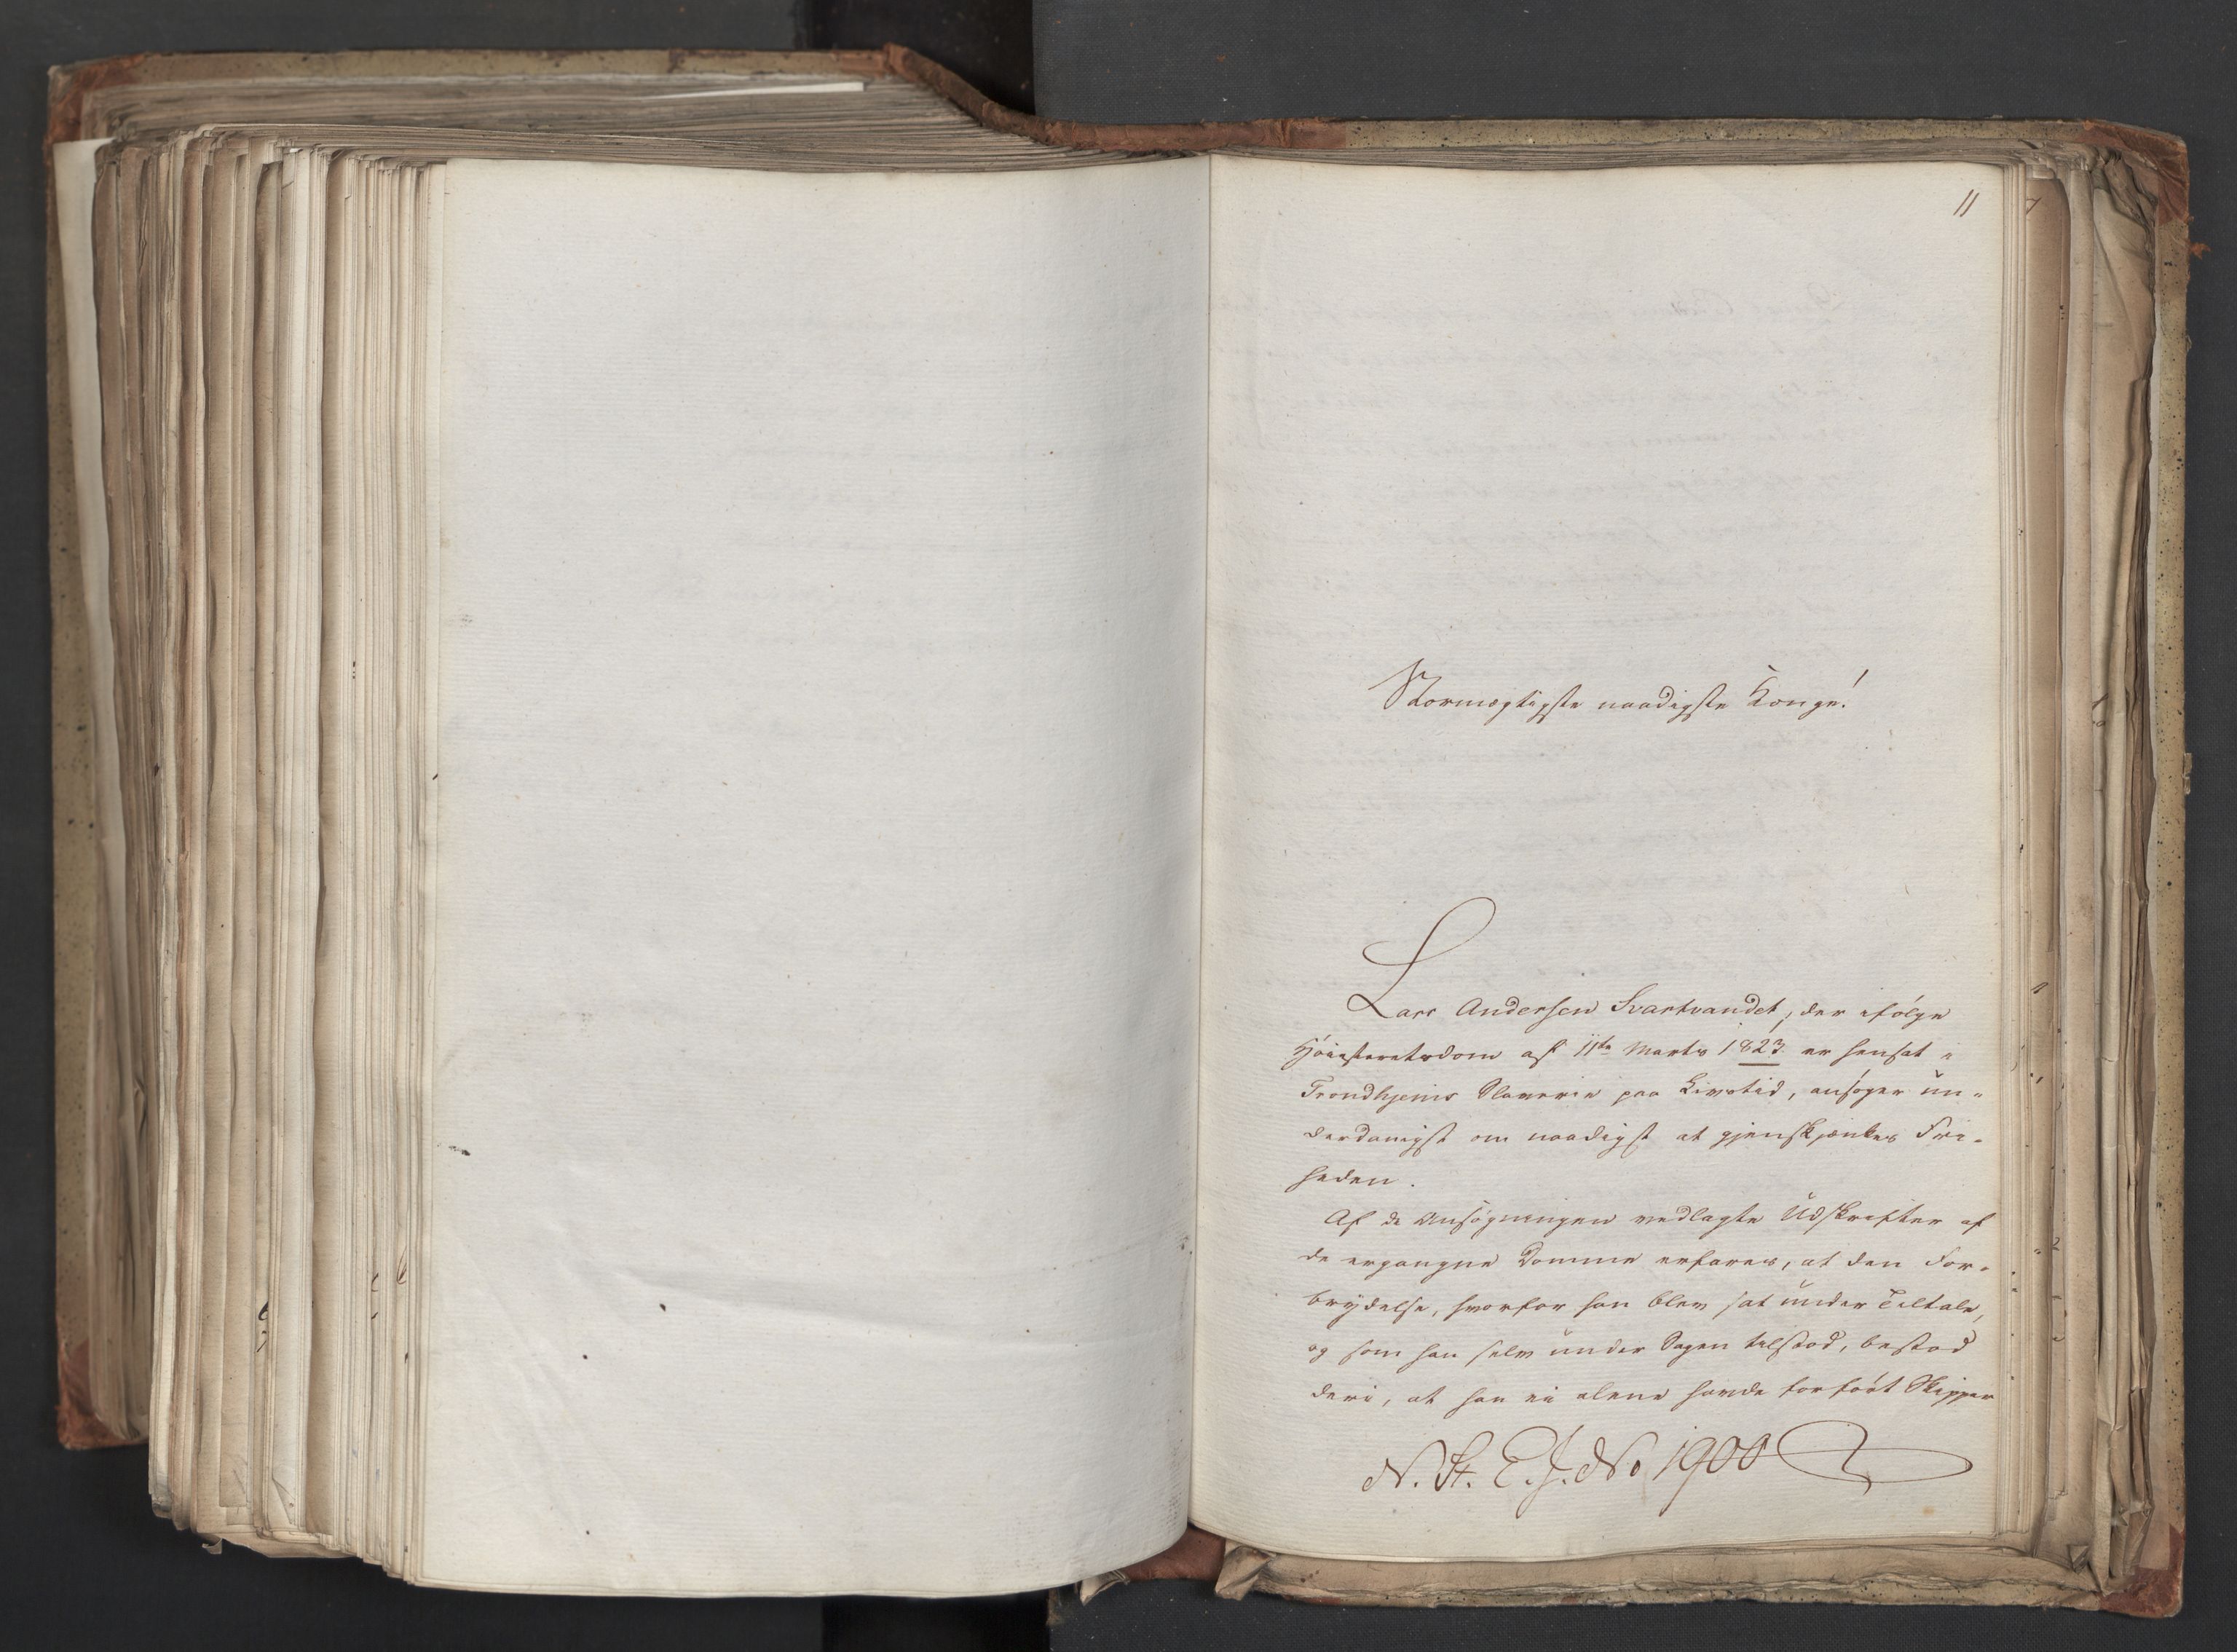 11
Stormægtigste naadigste Konge!
Lars Andersen Svartvandet, der ifølge
Høiesteretsdom af 11te Marts 1823 er hensat i
Trondhjems Slaverie paa Livstid, ansøger un-
derdanigst om naadigst at gjenskjænkes Fri-
heden.
Af de Ansøgningen vedlagte Udskrifter af
de ergangne Domme erfares, at den For-
brydelse, hvorfor han blev sat under Tiltale,
og som han selv under Sagen tilstod, bestod
deri, at han ei alene havde forført Skipper
N. St. E. J. No 1900